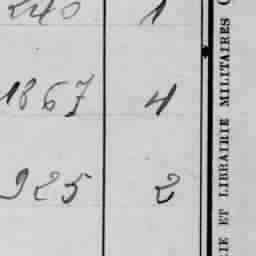 240 1
1867 4
925 2
IE ET LIBRAIRIE MILITAIRES